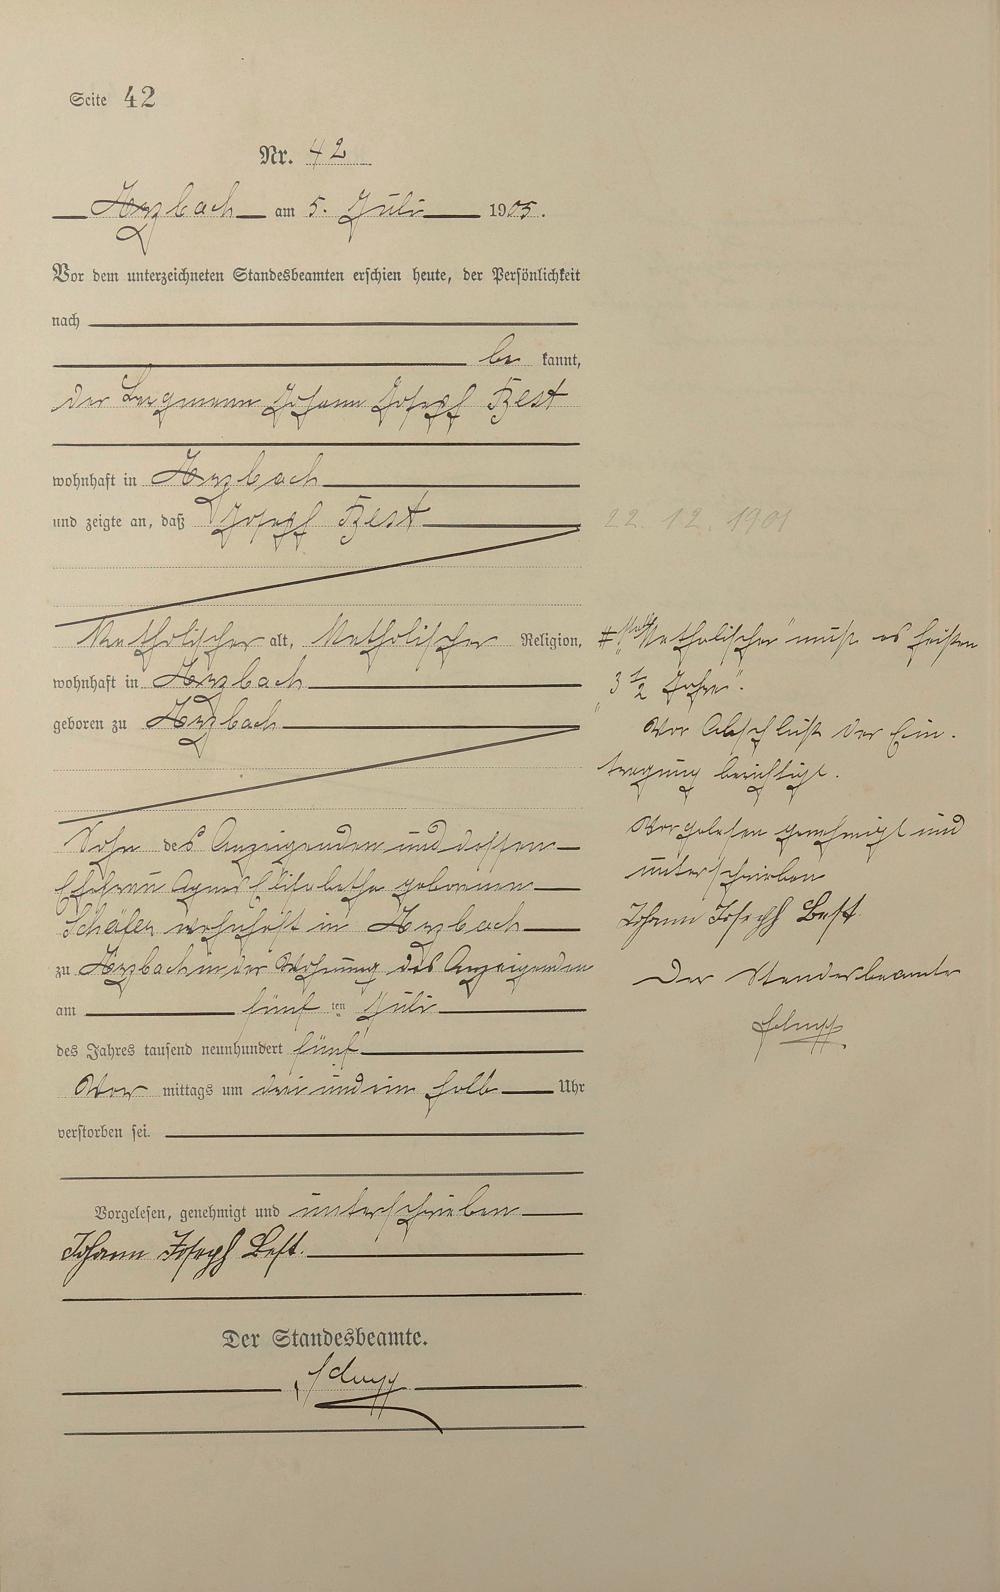 Seite 42
Nr. 42
Arzbach am 5. Juli 1905.
Vor dem unterzeichneten Standesbeamten erschien heute, der Persönlichkeit
nach
be kannt,
der Bergmann Johann Joseph Best
wohnhaft in Arzbach
und zeigte an, daß Joseph Best
Katholischer alt, Katholischer Religion,
wohnhaft in Arzbach
geboren zu Arzbach
Sohn des Anzeigenden und dessen
Ehefrau Agnes Elisabetha geborenen
Schäfer wohnhaft in Arzbach
zu Arzbach in der Wohnung des Anzeigenden
am fünf ten Juli
des Jahres tausend neunhundert fünf
Vor mittags um drei und ein halb Uhr
verstorben sei.
Vorgelesen, genehmigt und unterschrieben
Johann Joseph Best.
Der Standesbeamte.
Schupp
22. 12. 1901
# Statt „Katholischer" muß es heißen
„3 1/2 Jahre".
Vor Abschluß der Ein-
tragung berichtigt.
Vorgelesen genehmigt und
unterschrieben
Johann Joseph Best
Der Standesbeamte
Schupp